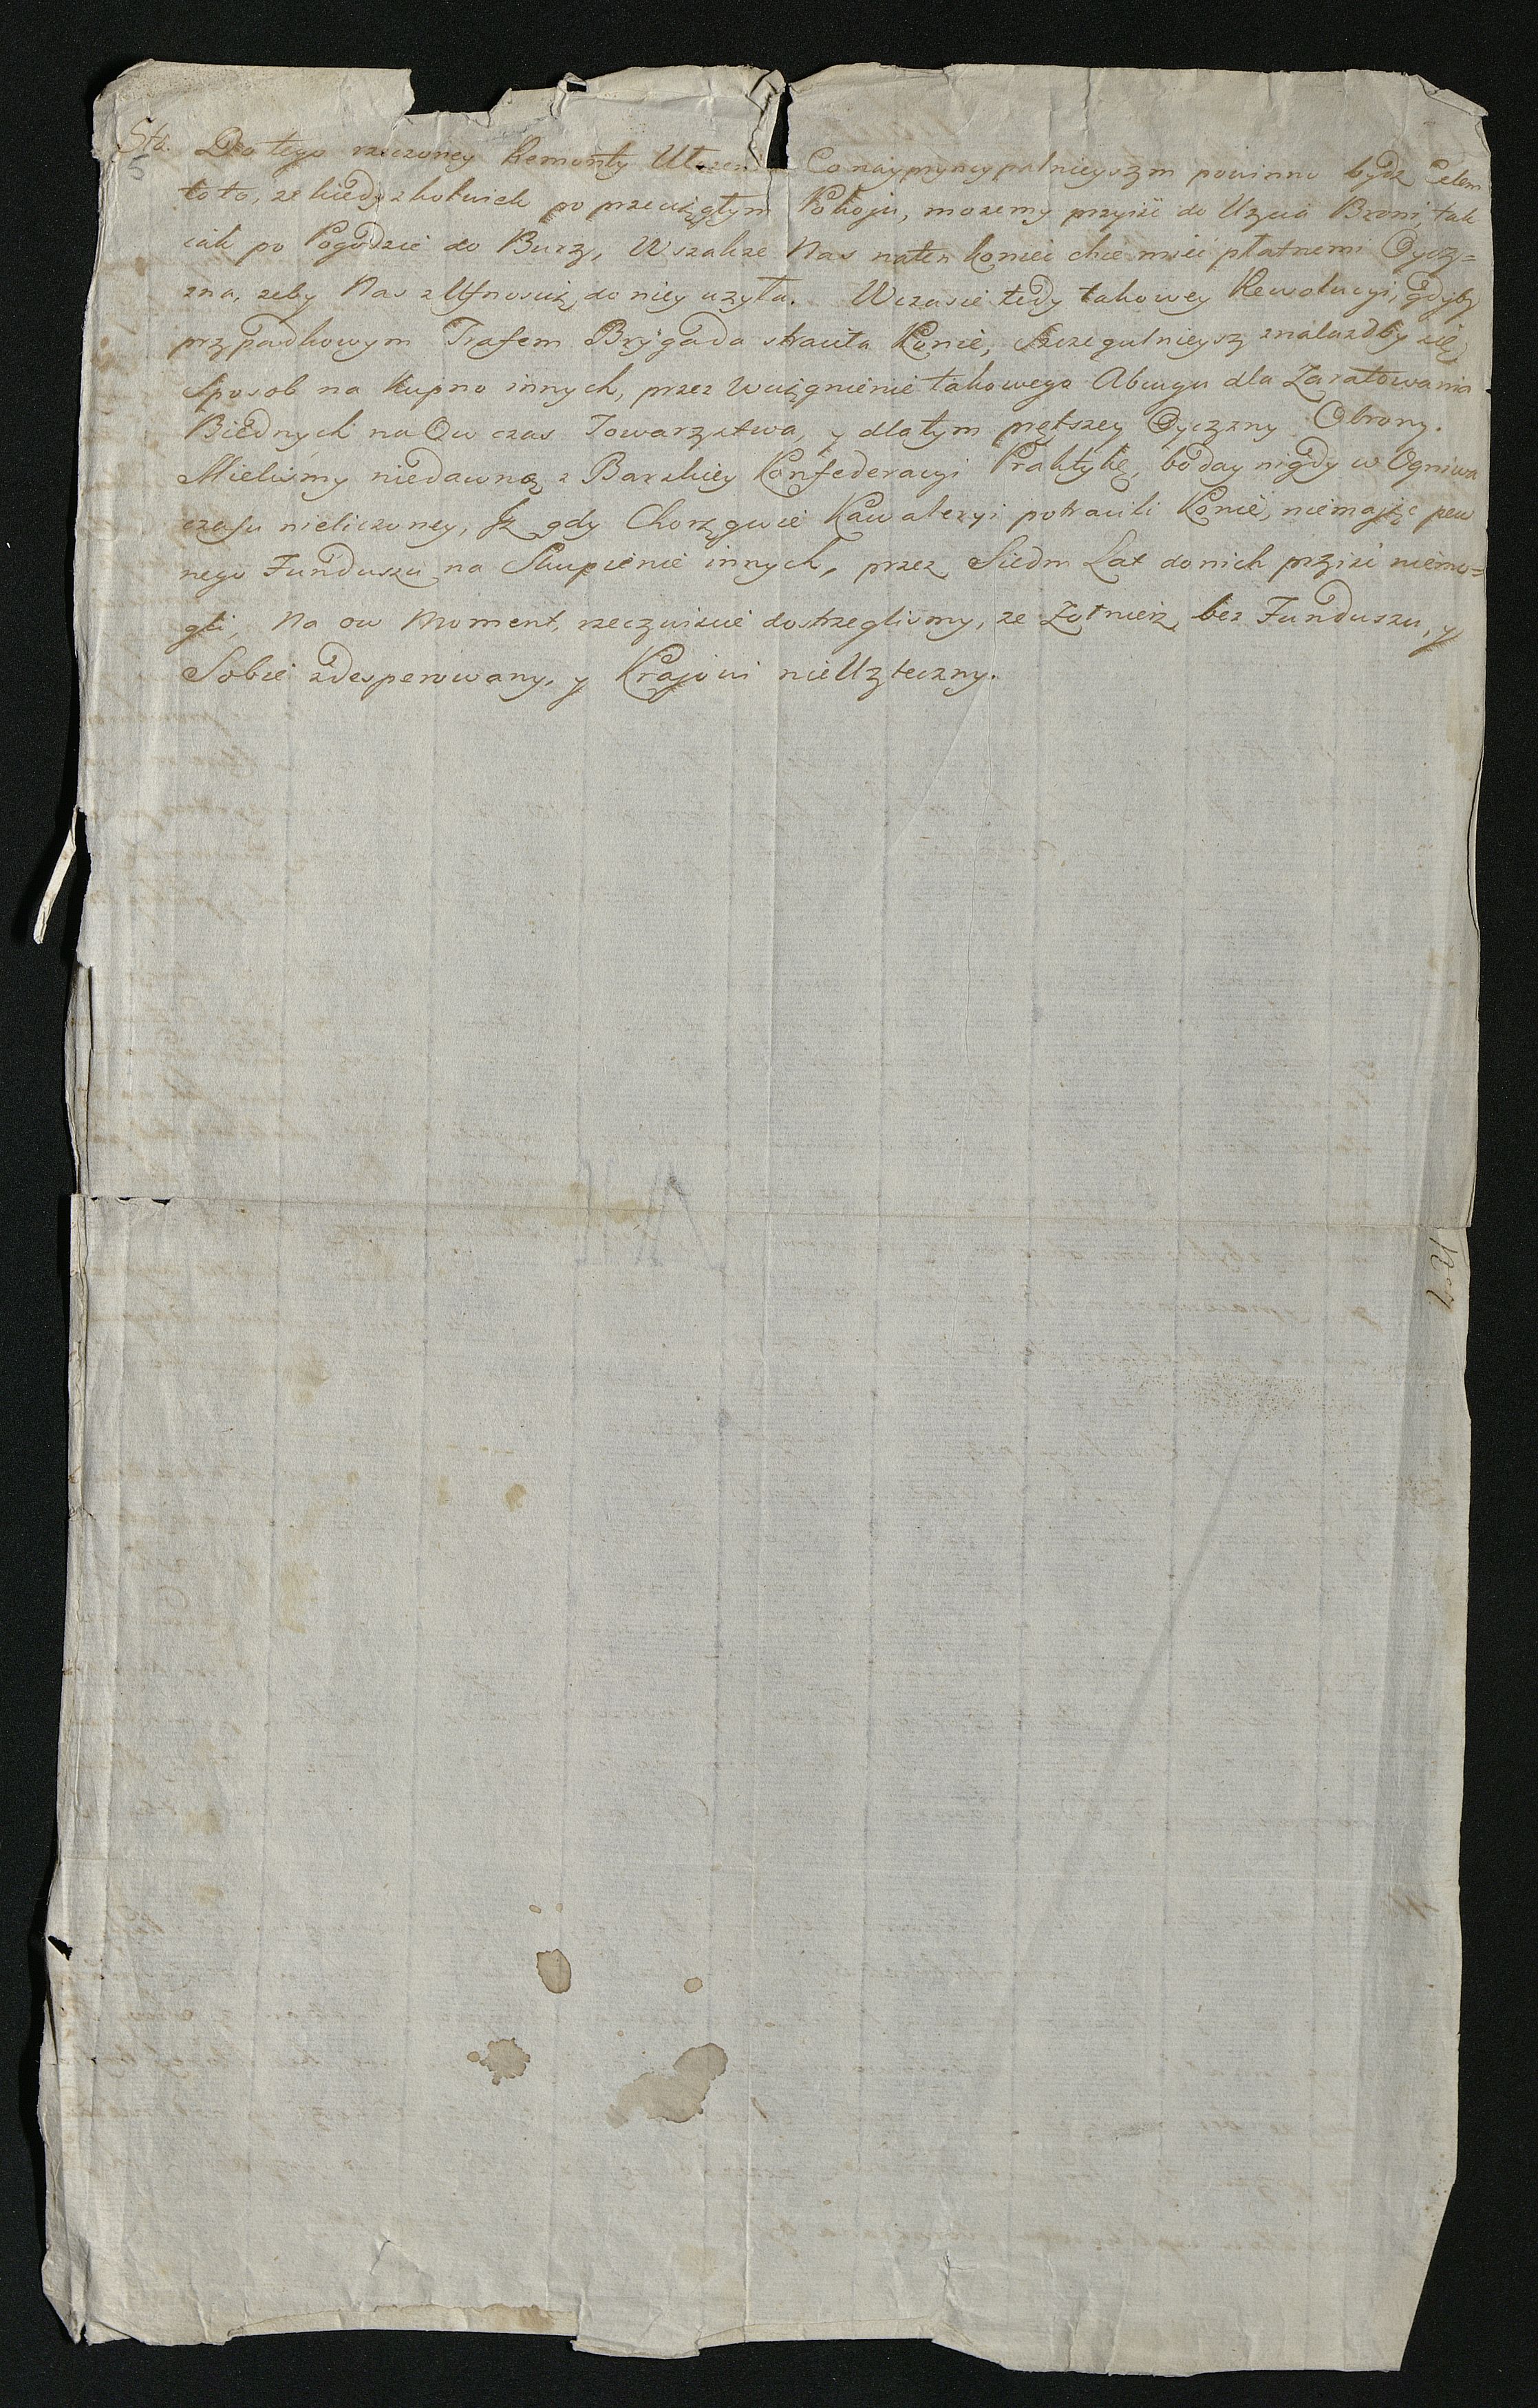 5ta. Do tego rzeczoney Remonty Co naypryncypalnieyszym powinno bydz Celem
to to, ze kiedyzkolwiek po przeciągłym Pokoju, mozemy przyisć do Uzycia Broni, tak
iak po Pogodzie do Burzy, Wszakze Nas naten koniec chce mieć płatnemi Oyczy=
zna, zeby Nas z Ufnoscią do niey uzyła. Wczasie tedy takowey Rewolucyi, gdyby
przypadkowym Trafem Brygada straciła Konie, Szczegulnieyszy znalazłby się
Sposob na Kupno innych, przez Wciągnienie takowego Abcugu dla Zaratowania
Biednych na Ow czas Towarzystwa, y dlatym prętszey Oyczyzny Obrony.
Mielismy niedawną z Barskiey Konfederacyi Praktykę, boday nigdy w Ogniwa
czasu nieliczoney, Iz gdy Chorągwie Kawaleryi potraciły Konie, niemaiąc pew
nego Funduszu na Skupienie innych, przez Siedm Lat do nich przyisć niemo=
gli, Na ow Moment, rzeczwiscie dostrzeglismy, ze Zołnierz, bez Funduszu, y
Sobie zdesperowany, y Kraiowi nieUzyteczny.